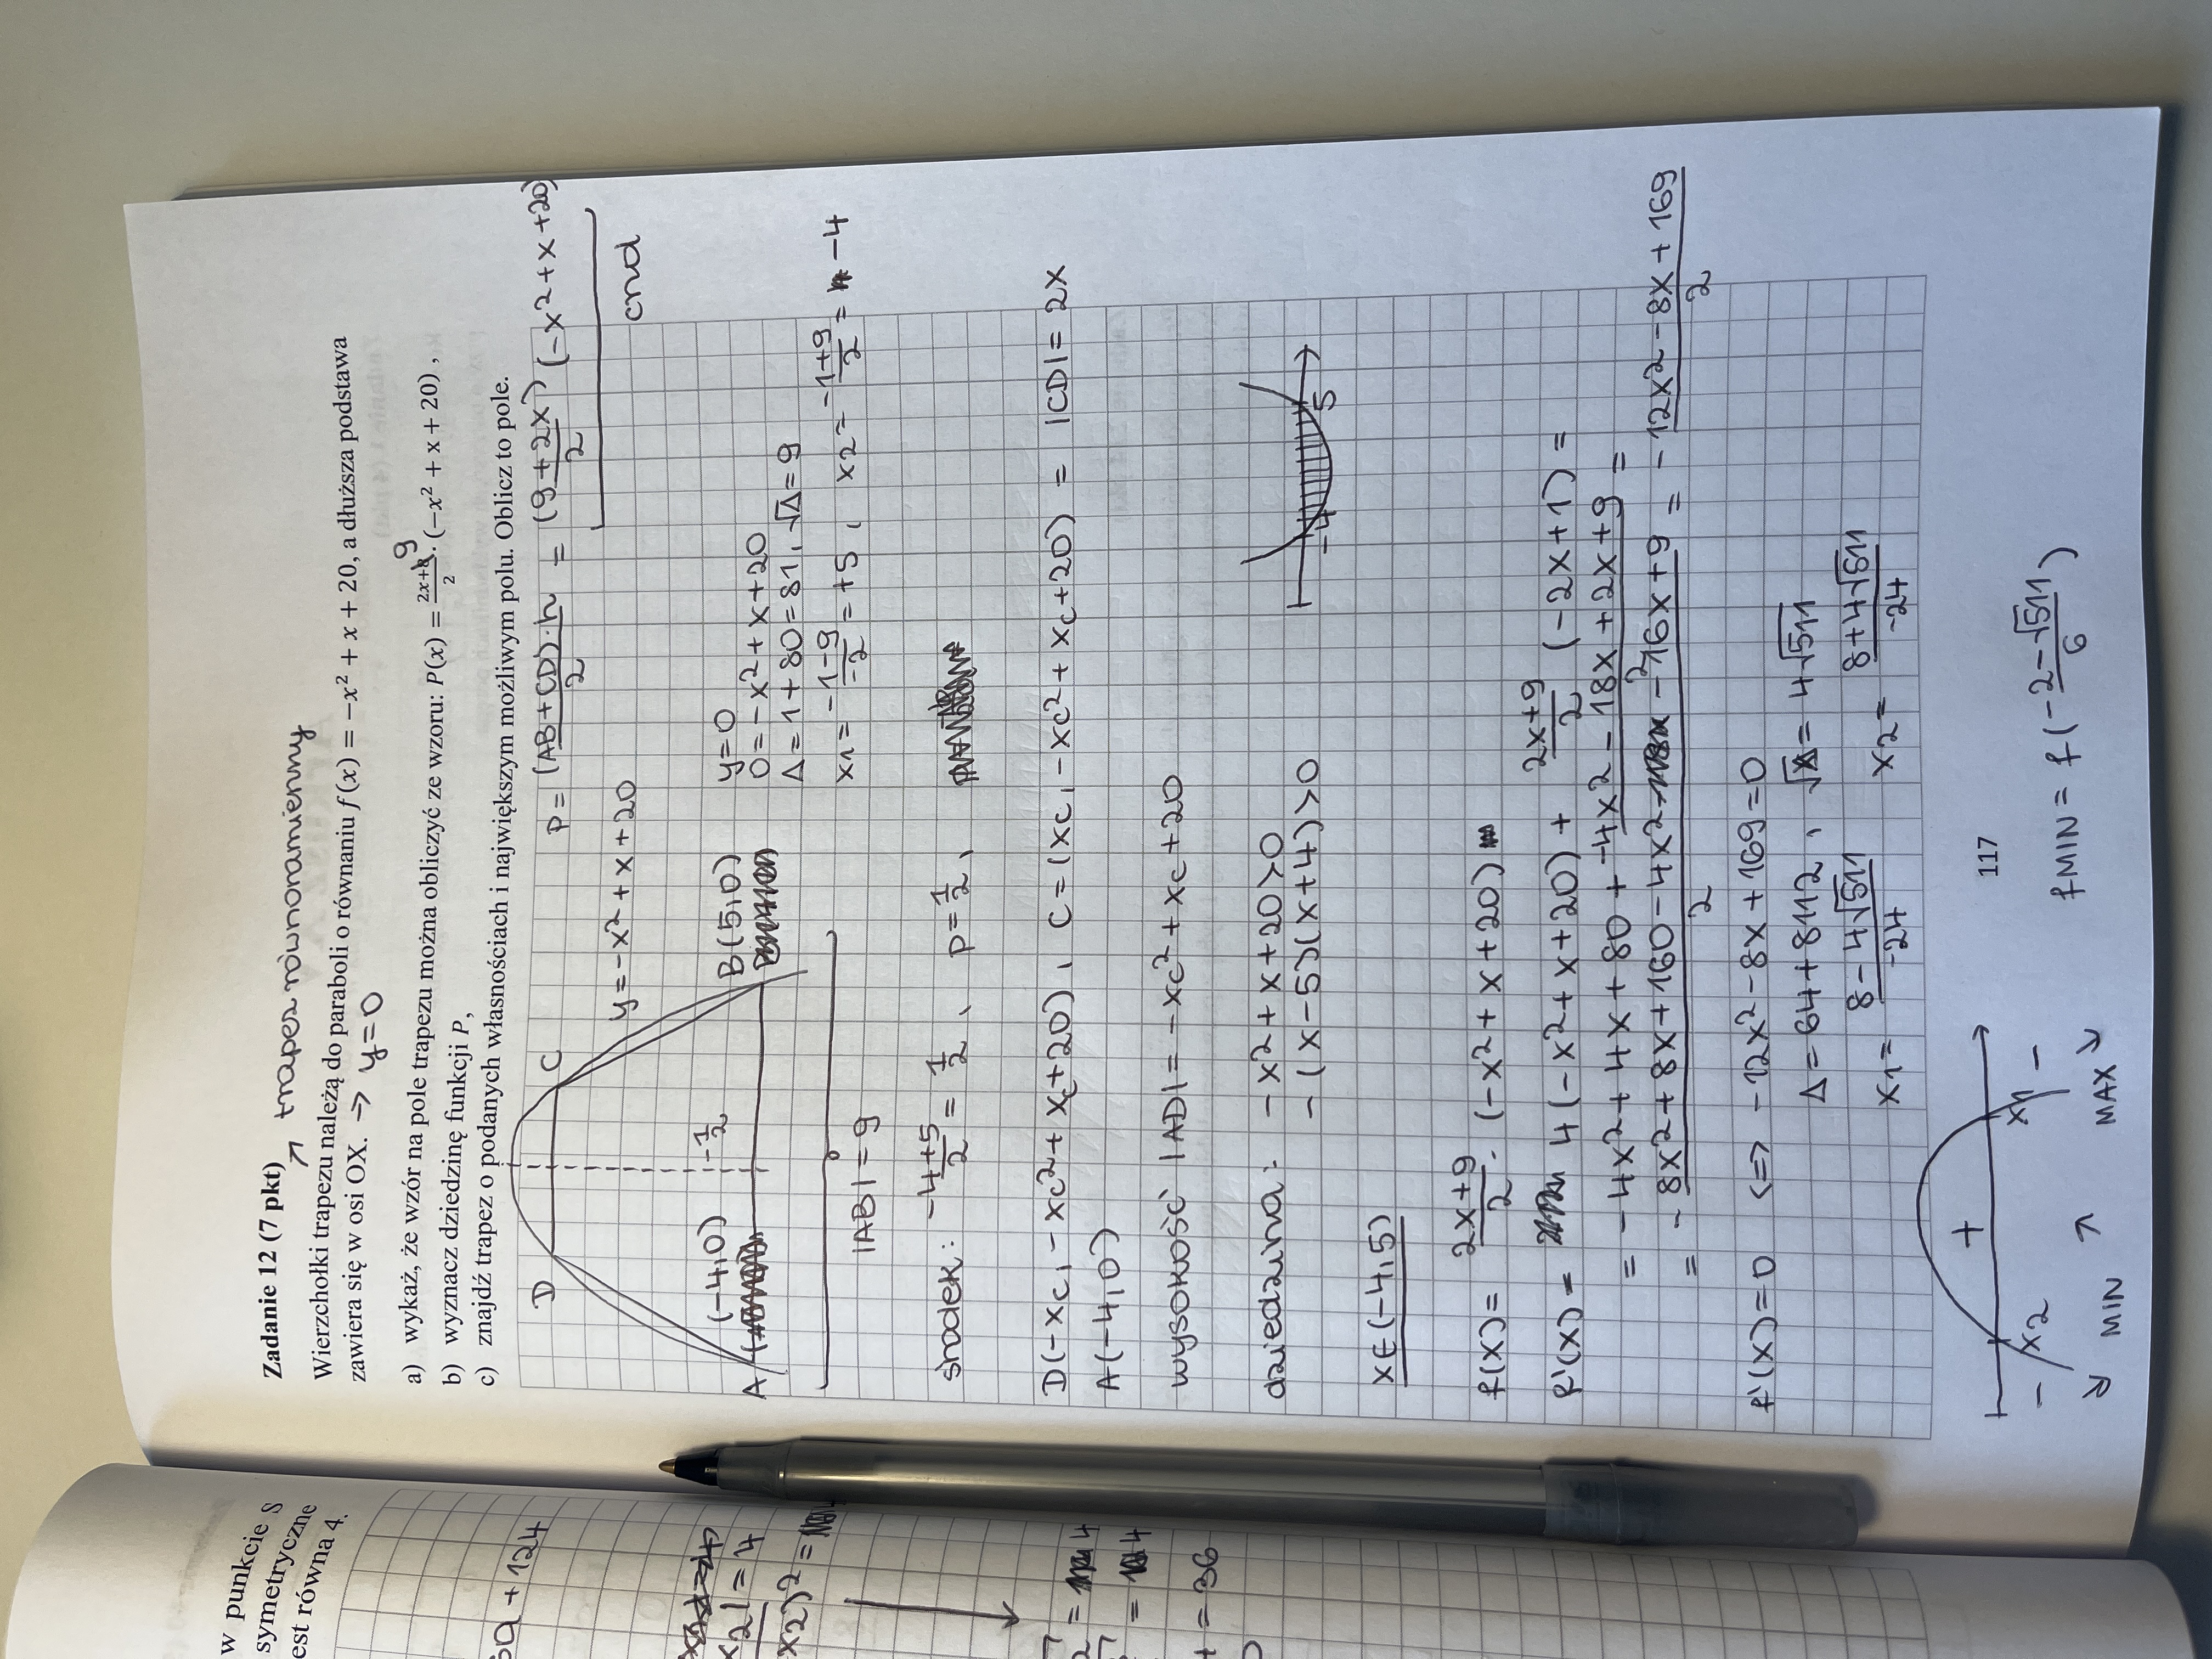 Zadanie 12 (7 pkt)
↗ trapez równoramienny
Wierzchołki trapezu należą do paraboli o równaniu f(x) = −x² + x + 20, a dłuższa podstawa
zawiera się w osi OX. → y=0
a) wykaż, że wzór na pole trapezu można obliczyć ze wzoru: P(x) = (2x+9)/2 · (−x² + x + 20),
b) wyznacz dziedzinę funkcji P,
c) znajdź trapez o podanych własnościach i największym możliwym polu. Oblicz to pole.
P = (AB+CD)·h/2 = (9+2x)/2 (−x²+x+20)
cnd
D C
y=−x²+x+20
−1/2
(−4,0) B(5,0)
A
y=0
0=−x²+x+20
Δ=1+80=81, √Δ=9
x1= −1−9/−2 =+5, x2= −1+9/2 = −4
|AB|=9
środek: −4+5/2 = 1/2, p=1/2,
D(−xc, −xc²+xc+20), C=(xc, −xc²+xc+20) = |CD|=2x
A(−4,0)
wysokość |AD|= −xc²+xc+20
dziedzina: −x²+x+20>0
−(x−5)(x+4)>0
−4 5
x∈(−4,5)
f(x)= 2x+9/2 · (−x²+x+20)
f'(x)= 4(−x²+x+20) + 2x+9/2 (−2x+1)=
= −4x²+4x+80 + −4x²−18x+2x+9/2 =
= −8x²+8x+160−4x²−16x+9/2 = −12x²−8x+169/2
f'(x)=0 <=> −12x²−8x+169=0
Δ=64+8112, √Δ=4√511
x1= 8−4√511/−24 x2= 8+4√511/−24
− x2 + x1 −
↘ MIN ↗ MAX ↘
117
fMIN = f(−2−√511/6)
w punkcie S
symetryczne
est równa 4.
a+124
x2|=4
x2)²=
=36